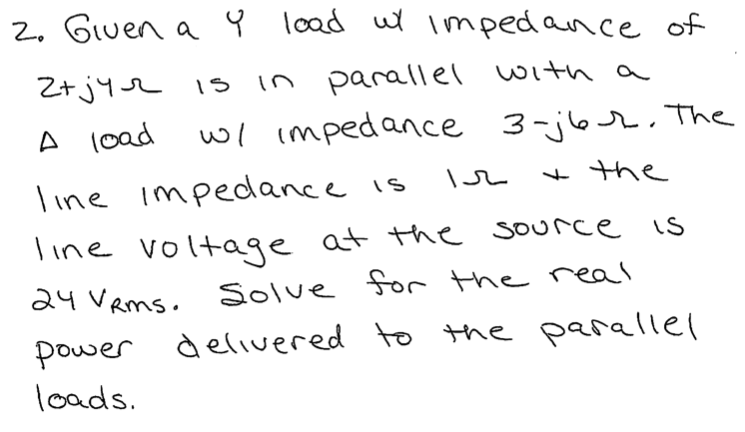 2. Given a Y load w/ impedance of
2+j4Ω is in parallel with a
Δ load w/ impedance 3-j6Ω. The
line impedance is 1Ω + the
line voltage at the source is
24 VRMS. Solve for the real
power delivered to the parallel
loads.